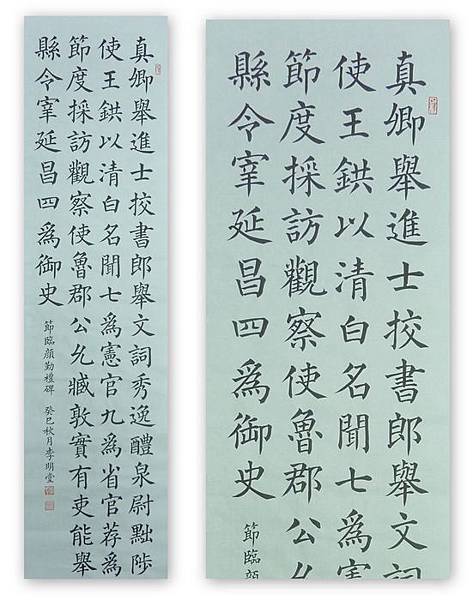 真卿舉進士挍書郎舉文詞秀逸醴泉尉黜陟
使王鉷以清白名聞七爲憲官九爲省官荐爲
節度採訪觀察使魯郡公允臧敦實有吏能舉
縣令宰延昌四爲御史
節臨顏勤禮碑 癸巳秋月李明堂
真卿舉進士挍書郎舉文詞
使王鉷以清白名聞七爲憲
節度採訪觀察使魯郡公允
縣令宰延昌四爲御史
節臨顏